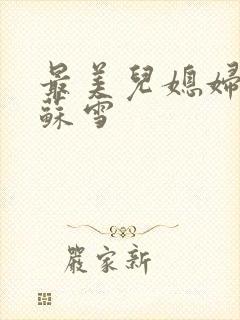 最美兒媳婦
蘇雪
嚴家新